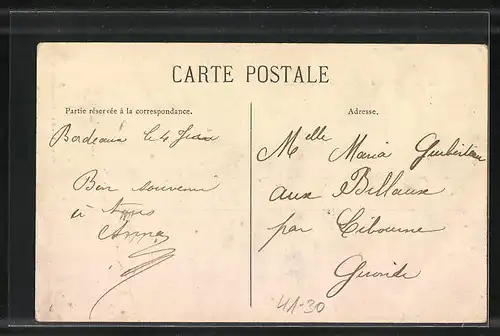 CARTE POSTALE
Partie réservée à la correspondance.
Adresse.
Bordeaux le 4 Juin
Bon souvenir
à
Anna
Melle Maria
aux Billaux
par Libourne
Gironde
41-30